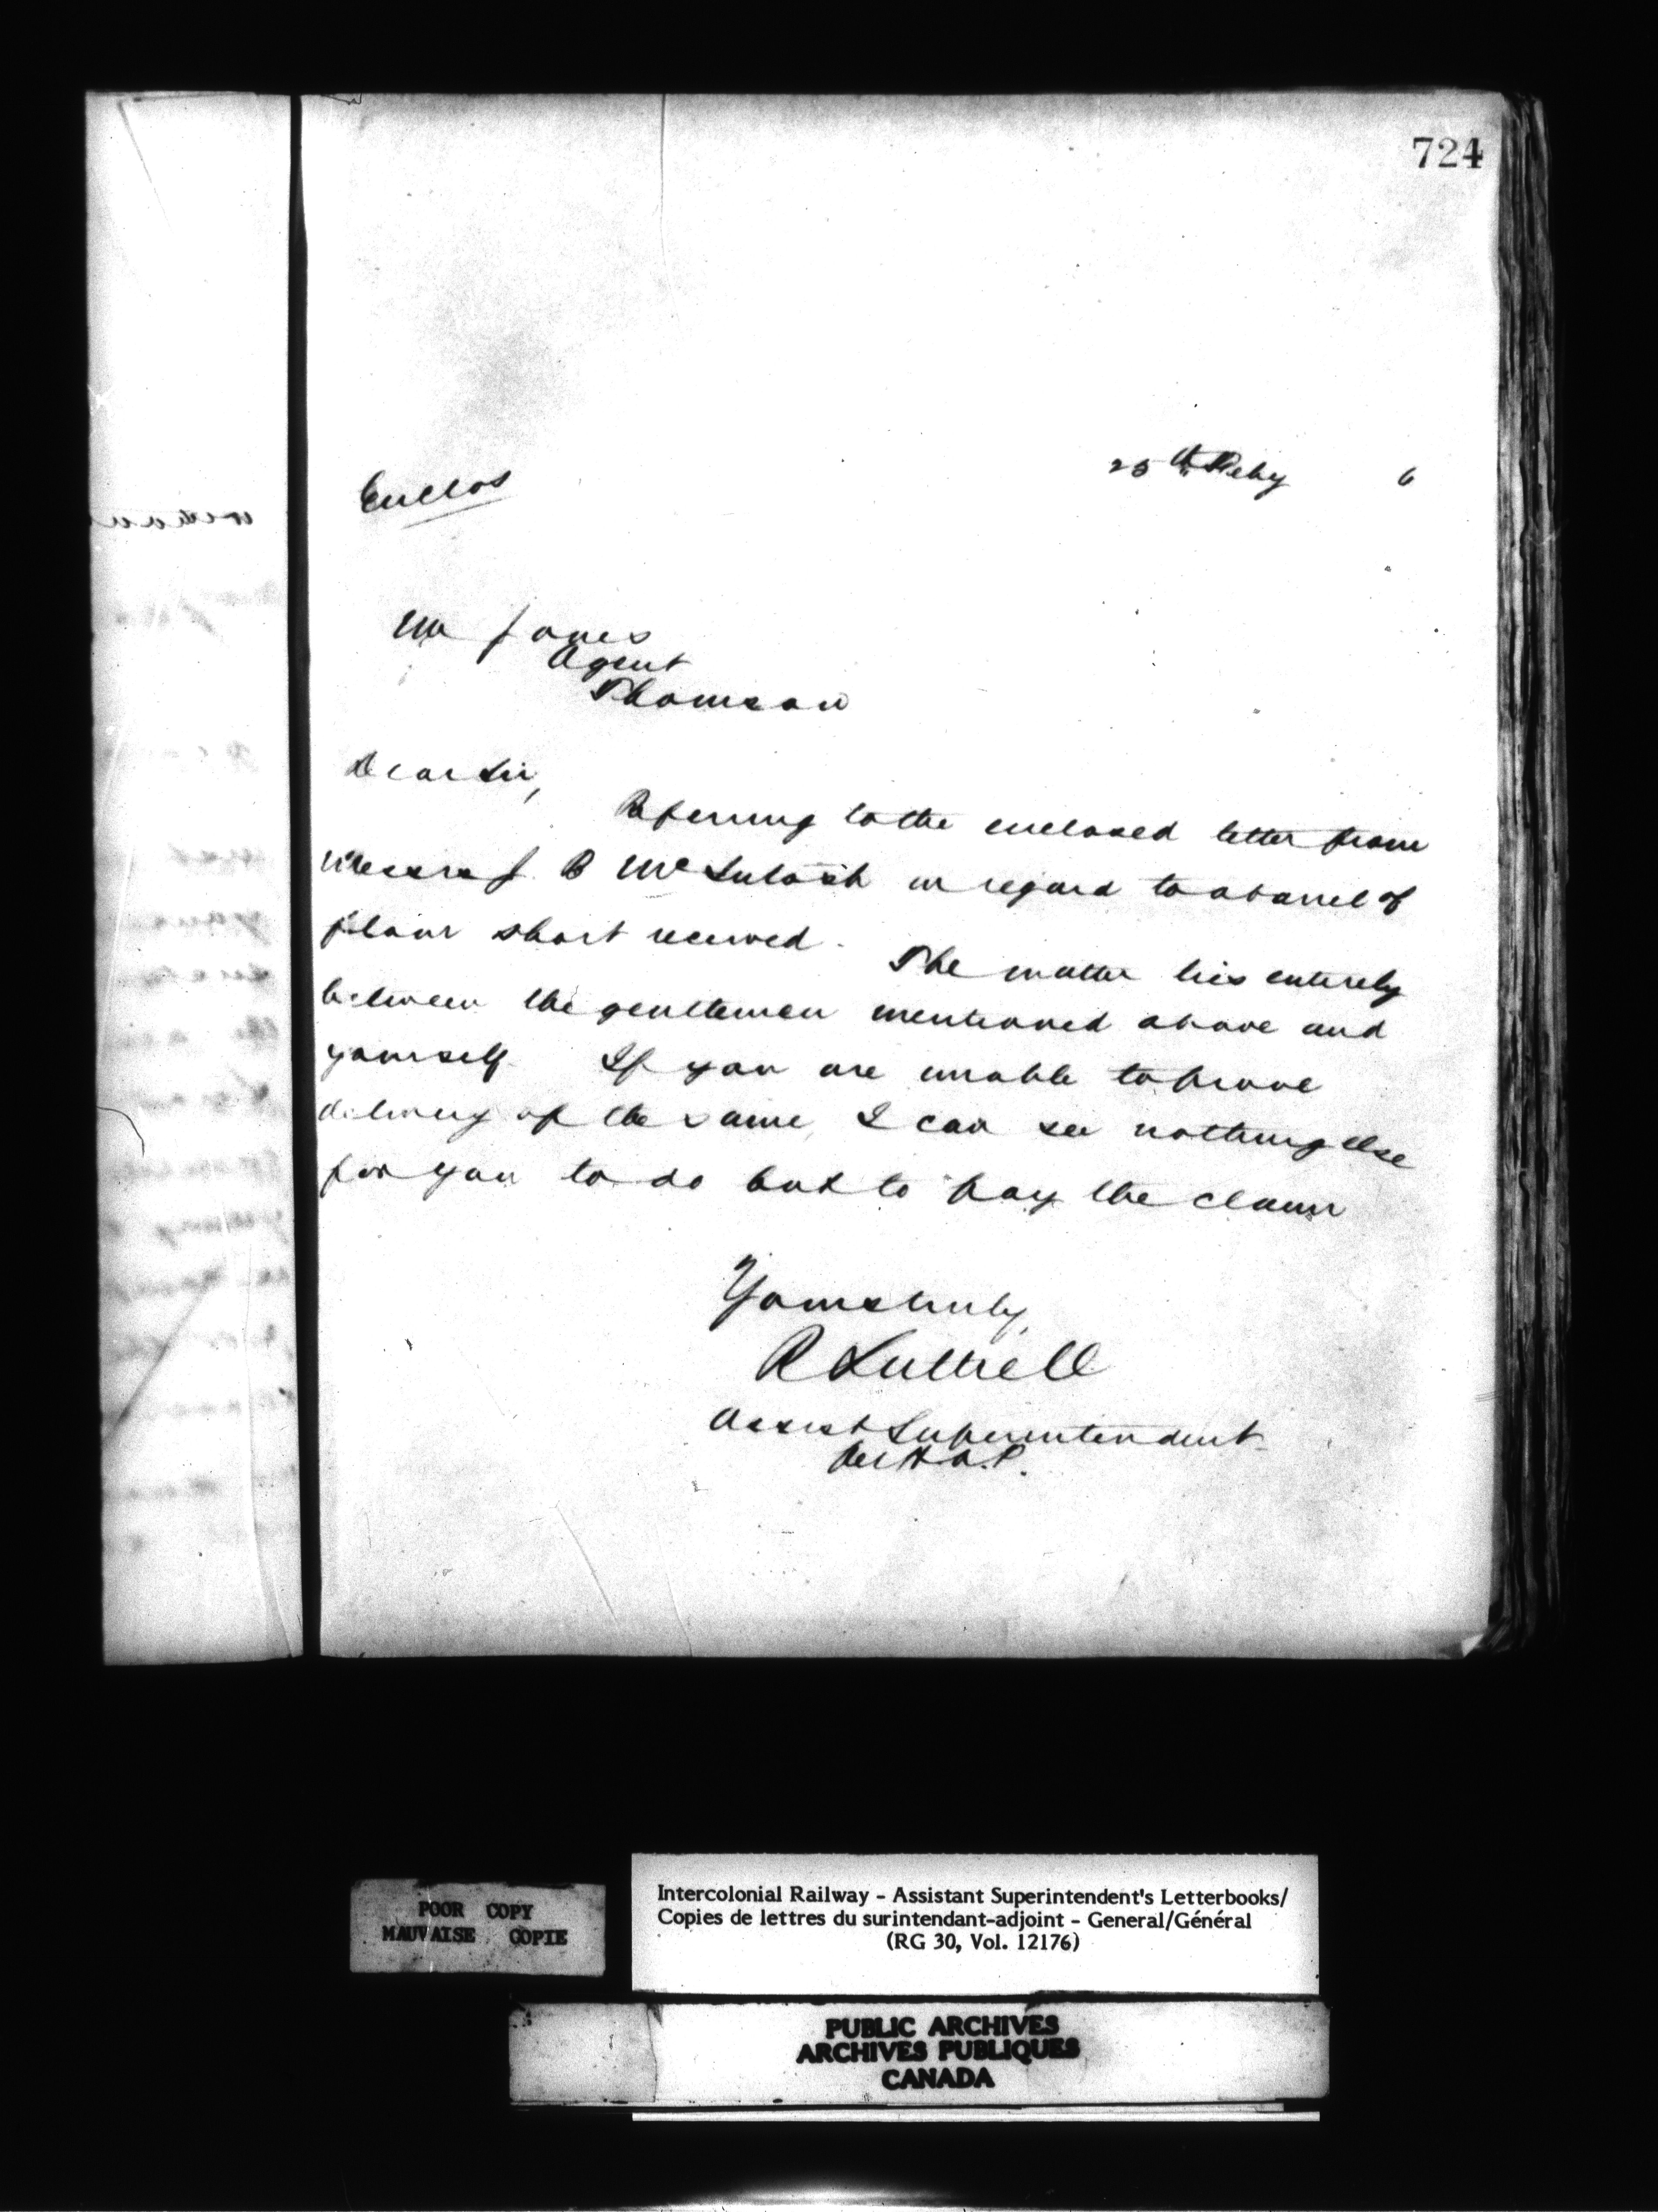 724
25th Feby 6
Enclos
Mr Jones
Agent
Thomson
Dear Sir,
Referring to the enclosed letter from
Messrs J. B McIntosh in regard to a barrel of
flour short received. The matter lies entirely
between the gentlemen mentioned above and
yourself If you are unable to prove
delivery of the same, I can see nothing else
for you to do but to pay the claim
Yours truly,
R Luttrell
Assist Superintendent
Per
POOR COPY
MAUVAISE COPIE
Intercolonial Railway - Assistant Superintendent's Letterbooks/
Copies de lettres du surintendant-adjoint - General/Général
(RG 30, Vol. 12176)
PUBLIC ARCHIVES
ARCHIVES PUBLIQUES
CANADA